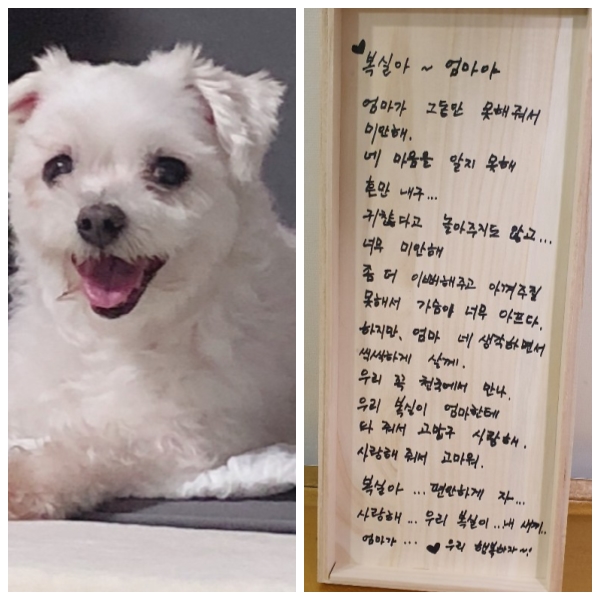 복실아 ~ 엄마야
엄마가 그동안 못해줘서
미안해.
네 마음을 알지 못해
혼만 내구...
귀찮다고 놀아주지도 않고...
너무 미안해
좀 더 이뻐해주고 아껴주질
못해서 가슴이 너무 아프다.
하지만, 엄마 네 생각하면서
씩씩하게 살께.
우리 꼭 천국에서 만나.
우리 복실이 엄마한테
와 줘서 고맙구 사랑해.
사랑해 줘서 고마워.
복실아 ... 편안하게 자...
사랑해... 우리 복실이...내 새끼..
엄마가 ... ♥ 우리 행복하자~!